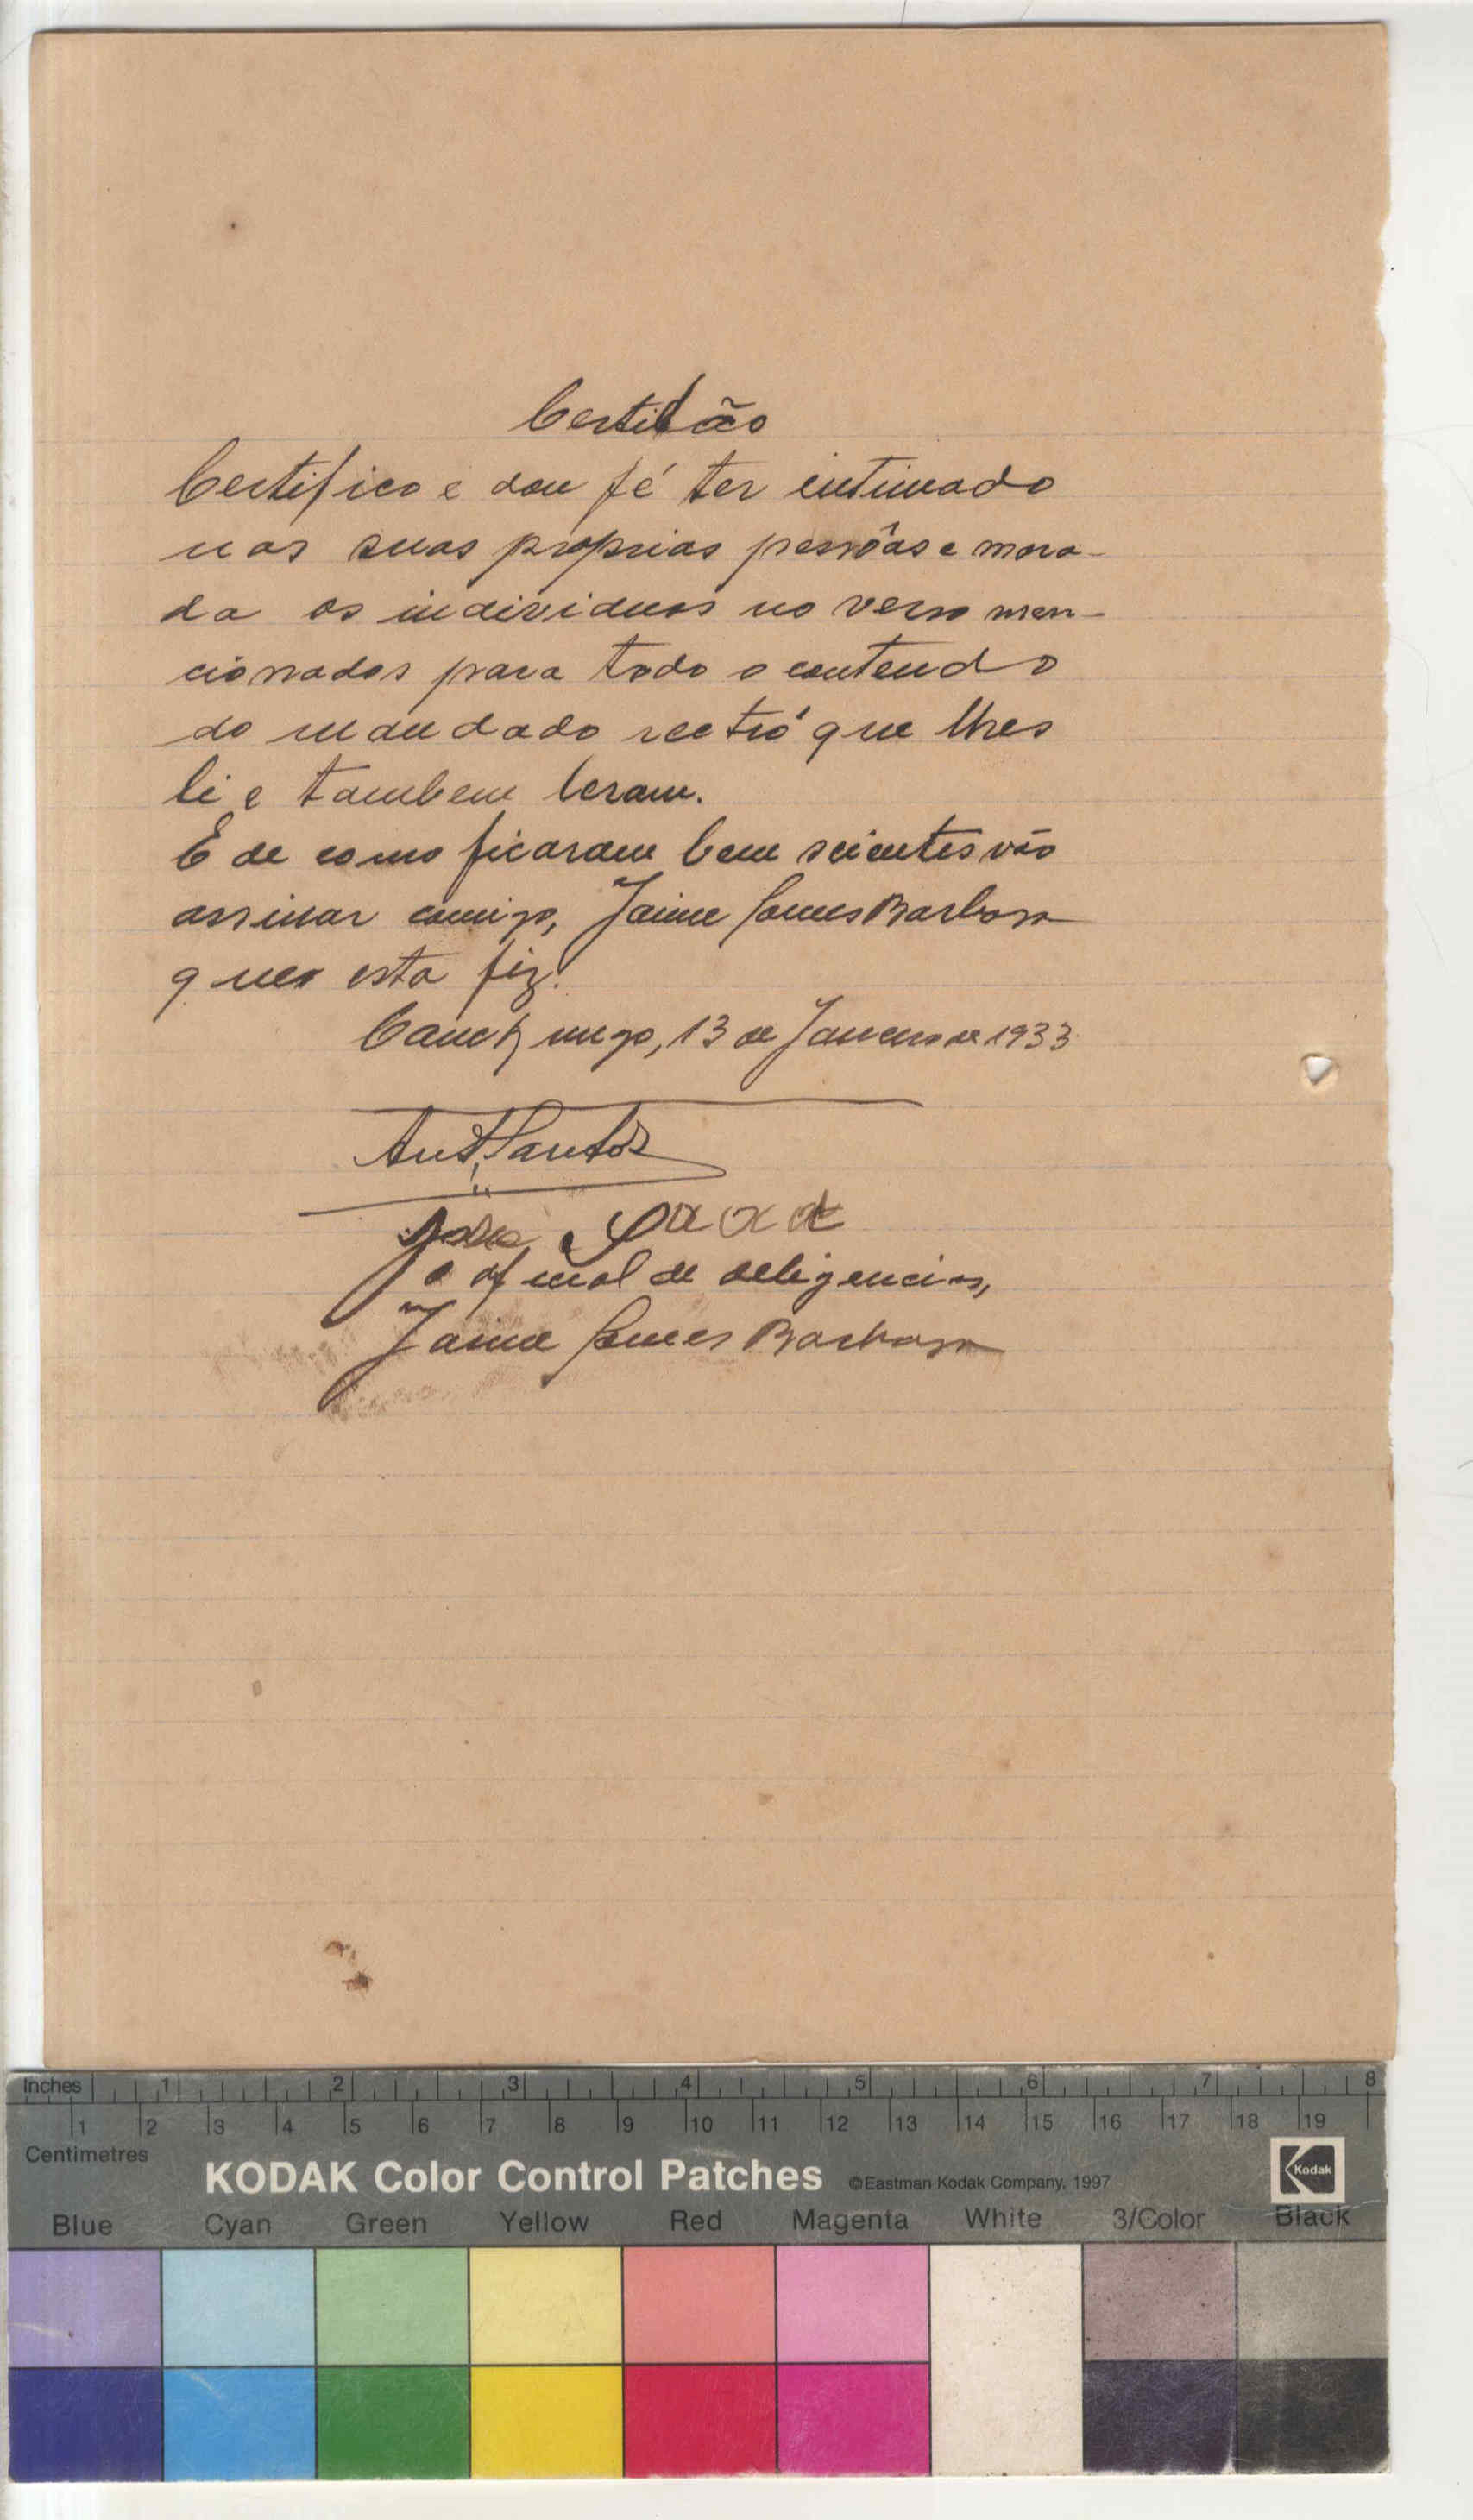 Certidão
Certifico e dou fé ter intimado
nas suas proprias pessôas e mora-
da os individuos no verso men-
cionados para todo o contendo
do mandado rectró que lhes
li e tambem leram.
E de como ficaram bem scientes vão
assinar comigo, Jaime Gomes Barbosa
quer esta fiz.
Canchungo, 13 de Janeiro de 1933
Antº Santos
José
o oficial de deligencias,
Jaime Gomes Barbosa
Inches 1 2 3 4 5 6 7 8
1 2 3 4 5 6 7 8 9 10 11 12 13 14 15 16 17 18 19
Centimetres
KODAK Color Control Patches ©Eastman Kodak Company, 1997 Kodak
Blue Cyan Green Yellow Red Magenta White 3/Color Black